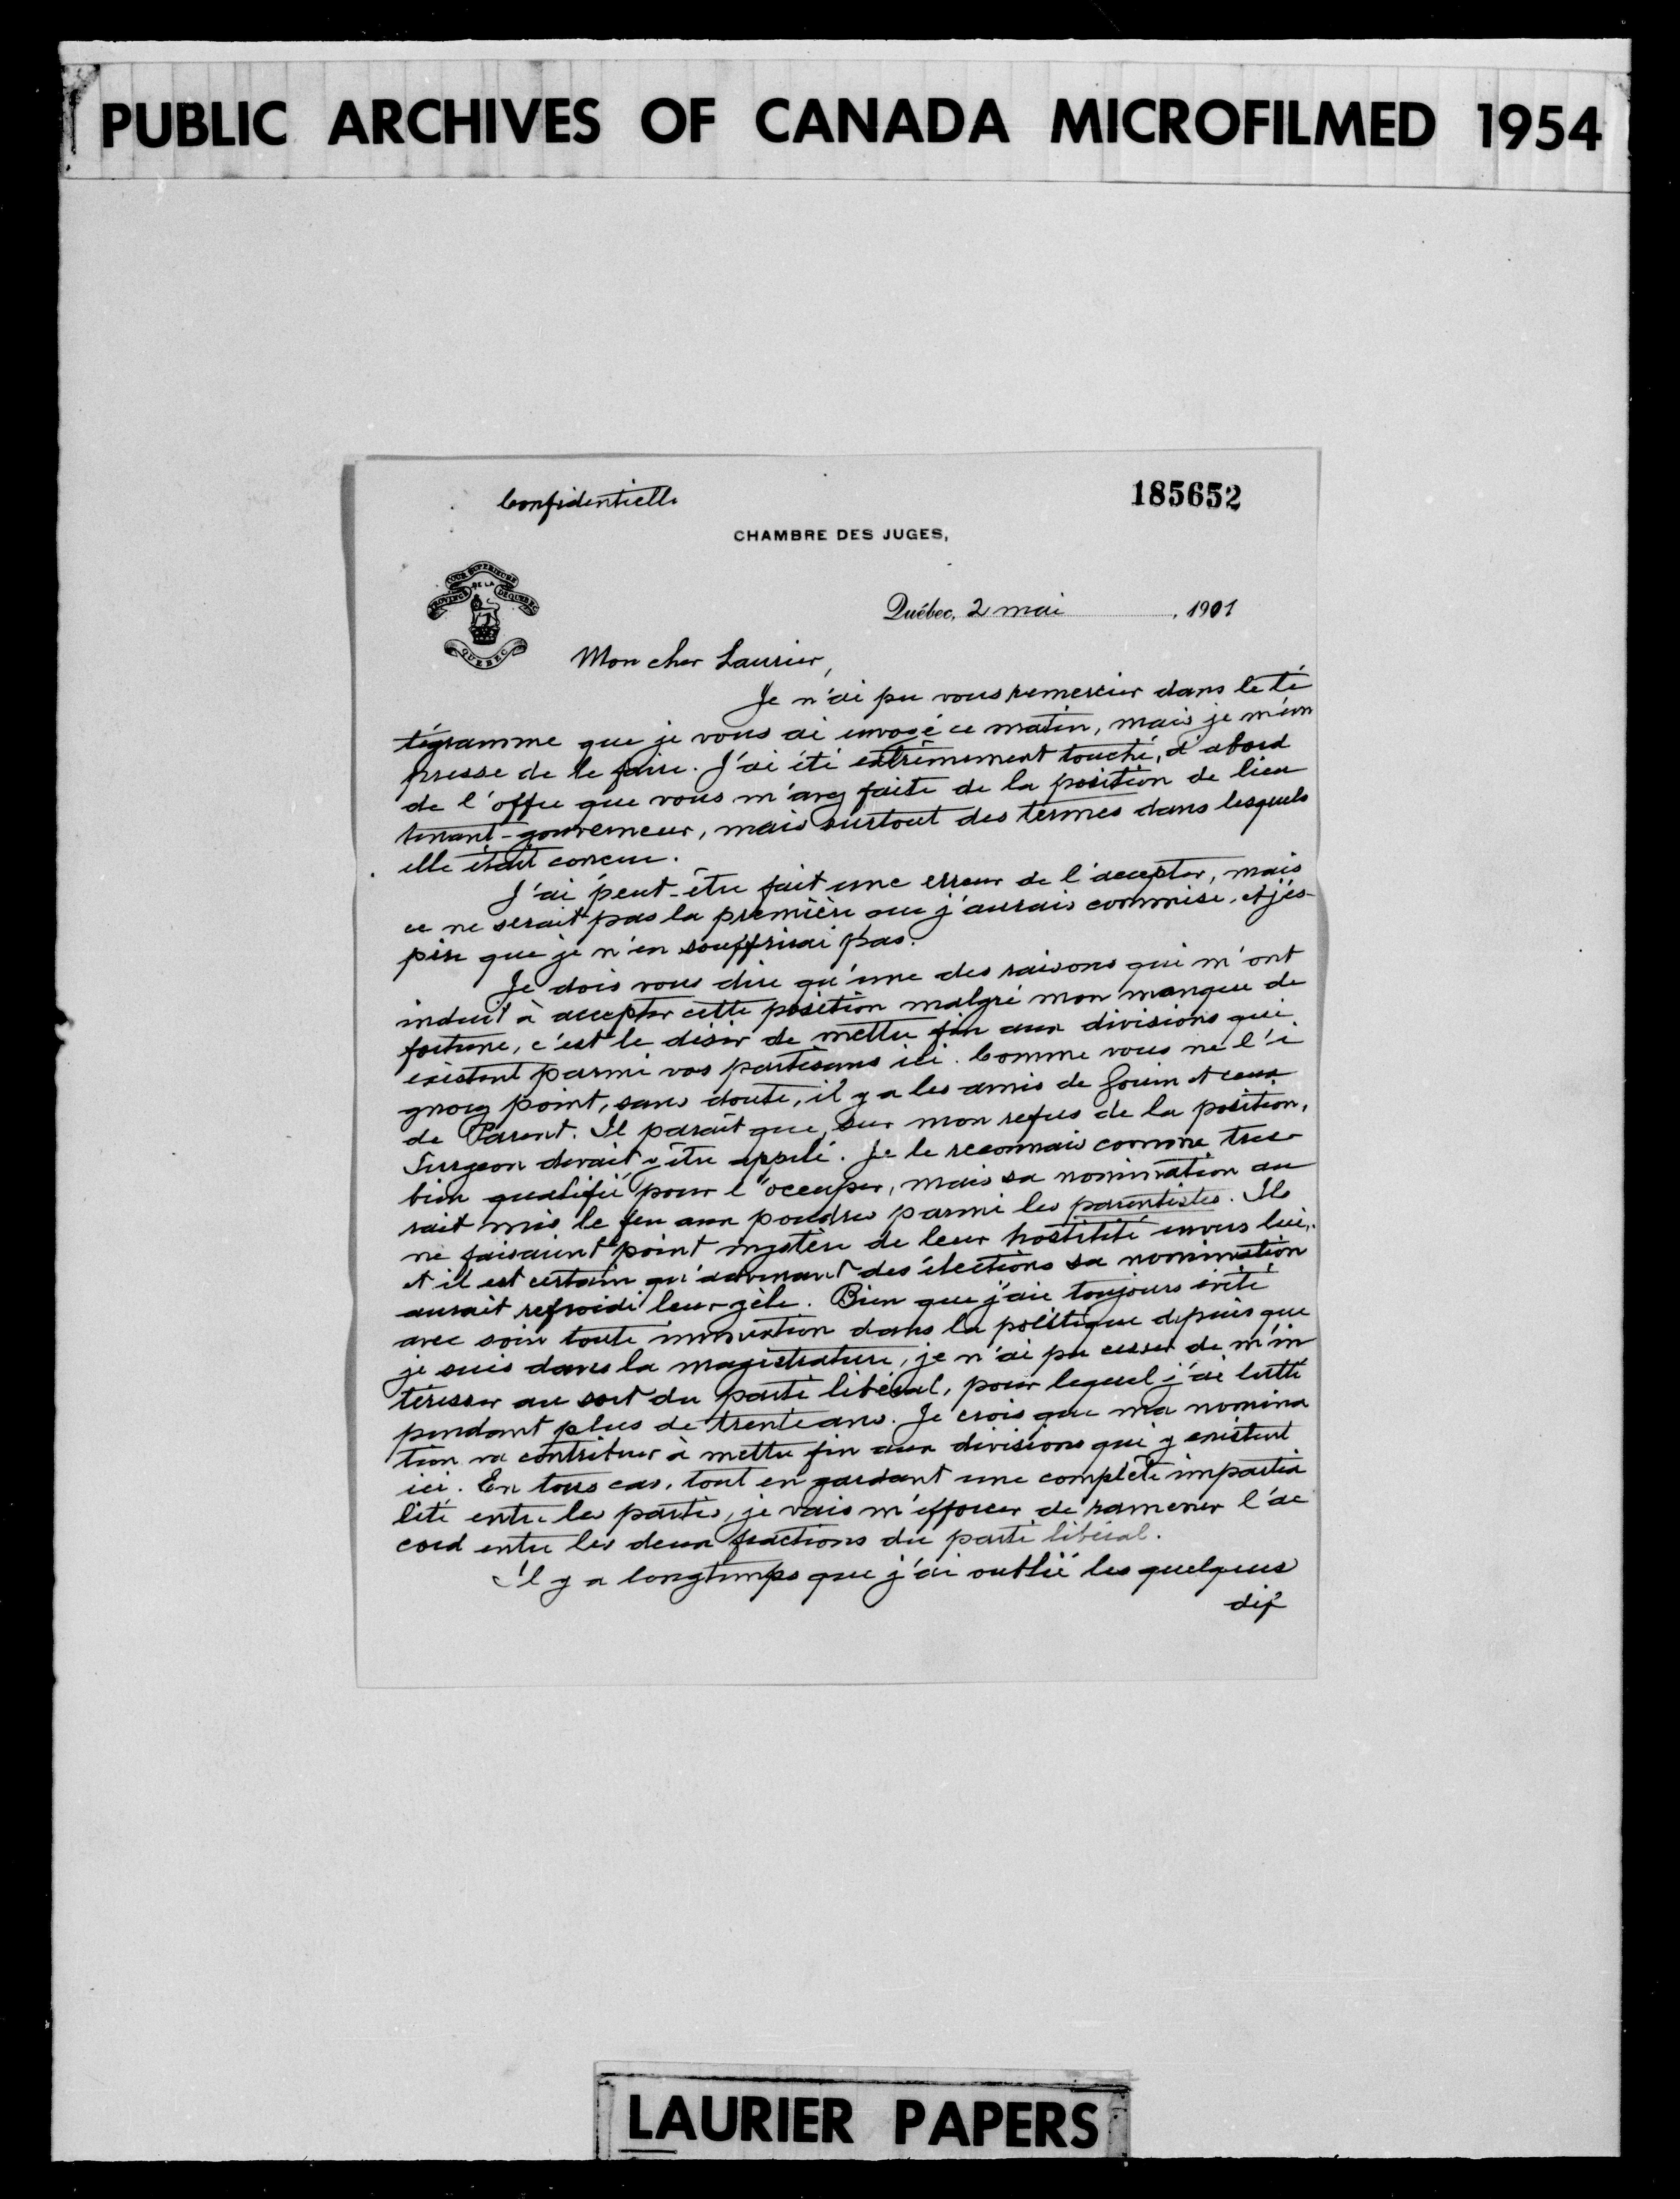 PUBLIC ARCHIVES OF CANADA MICROFILMED 1954
Confidentielle
185652
CHAMBRE DES JUGES,
COUR SUPÉRIEURE
DE LA
PROVINCE DE QUÉBEC
QUEBEC
Québec, 2 mai , 1901
Mon cher Laurier,
Je n'ai pu vous remercier dans le té
légramme que je vous ai envoyé ce matin, mais je m'em
presse de le faire. J'ai été extrêmement touché, d'abord
de l'offre que vous m'avez faite de la position de lieu
tenant-gouverneur, mais surtout des termes dans lesquels
elle était concue.
J'ai peut-être fait une erreur de l'accepter, mais
ce ne serait pas la première que j'aurais commise, et j'es-
père que je n'en souffrirai pas.
Je dois vous dire qu'une des raisons qui m'ont
induit à accepter cette position malgré mon manque de
fortune, c'est le désir de mettre fin aux divisions qui
existent parmi vos partisans ici. Comme vous ne l'i
gnorez point, sans doute, il y a les amis de Gouin et ceux
de Parent. Il parait que, sur mon refus de la position,
Turgeon devait y être appelé. Je le reconnais comme très
bien qualifié pour l'occuper, mais sa nomination au
rait mis le feu aux poudres parmi les parentistes. Ils
ne faisaient point mystère de leur hostilité envers lui,
et il est certain qu'advenant des élections sa nomination
aurait refroidi leur zèle. Bien que j'aie toujours évité
avec soin toute immixtion dans la politique depuis que
je suis dans la magistrature, je n'ai pu cesser de m'in
téresser au sort du parti libéral, pour lequel j'ai lutté
pendant plus de trente ans. Je crois que ma nomina
tion va contribuer à mettre fin aux divisions qui y existent
ici. En tous cas, tout en gardant une complète impartia
lité entre les partis, je vais m'efforcer de ramener l'ac
cord entre les deux fractions du parti libéral.
Il y a longtemps que j'ai oublié les quelques
dif
LAURIER PAPERS